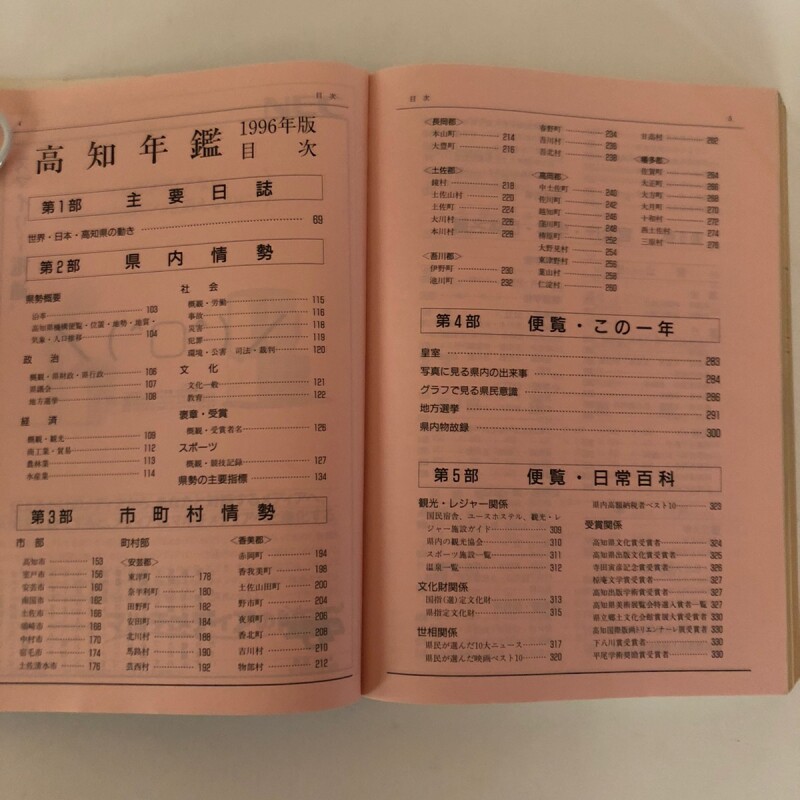 目次
4
高知年鑑 1996年版
目次
第1部 主要日誌
世界・日本・高知県の動き 69
第2部 県内情勢
県勢概要
沿革 103
高知県機構便覧・位置・地勢・地質・
気象・人口推移 104
政治
概観・県財政・県行政 106
県議会 107
地方選挙 108
経済
概観・観光 109
商工業・貿易 112
農林業 113
水産業 114
社会
概観・労働 115
事故 116
災害 118
犯罪 119
環境・公害 司法・裁判 120
文化
文化一般 121
教育 122
褒章・受賞
概観・受賞者名 126
スポーツ
概観・競技記録 127
県勢の主要指標 134
第3部 市町村情勢
市部
高知市 153
室戸市 156
安芸市 160
南国市 162
土佐市 166
須崎市 168
中村市 170
宿毛市 174
土佐清水市 176
町村部
<安芸郡>
東洋町 178
奈半利町 180
田野町 182
安田町 184
北川村 188
馬路村 190
芸西村 192
<香美郡>
赤岡町 194
香我美町 198
土佐山田町 200
野市町 204
夜須町 206
香北町 208
吉川村 210
物部村 212
目次
5
<長岡郡>
本山町 214
大豊町 216
<土佐郡>
鏡村 218
土佐山村 220
土佐町 224
大川村 226
本川村 228
<吾川郡>
伊野町 230
池川町 232
春野町 234
吾川村 236
吾北村 238
<高岡郡>
中土佐町 240
佐川町 242
越知町
窪川町 248
檮原町
大野見村 254
東津野村 256
葉山村 258
仁淀村 260
日高村 262
<幡多郡>
佐賀町 264
大正町
大方町
大月町 270
十和村 272
西土佐村 274
三原村 276
第4部 便覧・この一年
皇室 283
写真に見る県内の出来事 284
グラフで見る県民意識 286
地方選挙 291
県内物故録 300
第5部 便覧・日常百科
観光・レジャー関係
国民宿舎、ユースホステル、観光・レ
ジャー施設ガイド 308
県内の観光協会 310
スポーツ施設一覧 311
温泉一覧 312
文化財関係
国指(選)定文化財 313
県指定文化財 315
世相関係
県民が選んだ10大ニュース 317
県民が選んだ映画ベスト10 320
県内高額納税者ベスト10 323
受賞関係
高知県文化賞受賞者 324
高知県出版文化賞受賞者 325
寺田寅彦記念賞受賞者 326
椋庵文学賞受賞者 327
高知出版学術賞受賞者 327
高知県美術展覧会特選入賞者一覧 327
県立郷土文化会館賞展大賞受賞者 330
高知国際版画トリエンナーレ展受賞者 330
下八川賞受賞者 330
平尾学術奨励賞受賞者 330